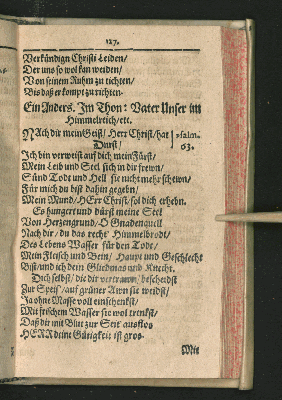 127.
Verkündign Christi Leiden/
Der uns so wol kan weiden/
Von seinem Ruhm zu tichten/
Bis daß er kompt zu richten.
Ein Anders. Im Thon: Vater Unser im
Himmelreich/etc.
NAch dir mein Geist/ Herr Christ/ hat
Durst/
Psalm.
63.
Ich bin verweist auf dich mein Fürst/
Mein Leib und Seel sich in dir frewn/
Sünd Tode und Hell sie nicht mehr schewn/
Für mich du bist dahin gegebn/
Mein Mund/ HErr Christ/ sol dich erhebn.
Es hungert und dürst meine Seel
Von Hertzengrund/ O Gnadenquell
Nach dir/ du das recht Himmelbrodt/
Des Lebens Wasser für den Tode/
Mein Fleisch und Bein/ Haupt und Geschlecht
Bist/ und ich dein Gliedmas und Knecht.
Dich selbst/ die dir vertrawn/ bescheidst
Zur Speis/ auf grüner Awn sie weidst/
Ja ohne Masse voll einschenkst/
Mit frischem Wasser sie wol trinkst/
Daß dir mit Blut zur Seit ausflos
HERR deine Gütigkeit ist gros.
Mit